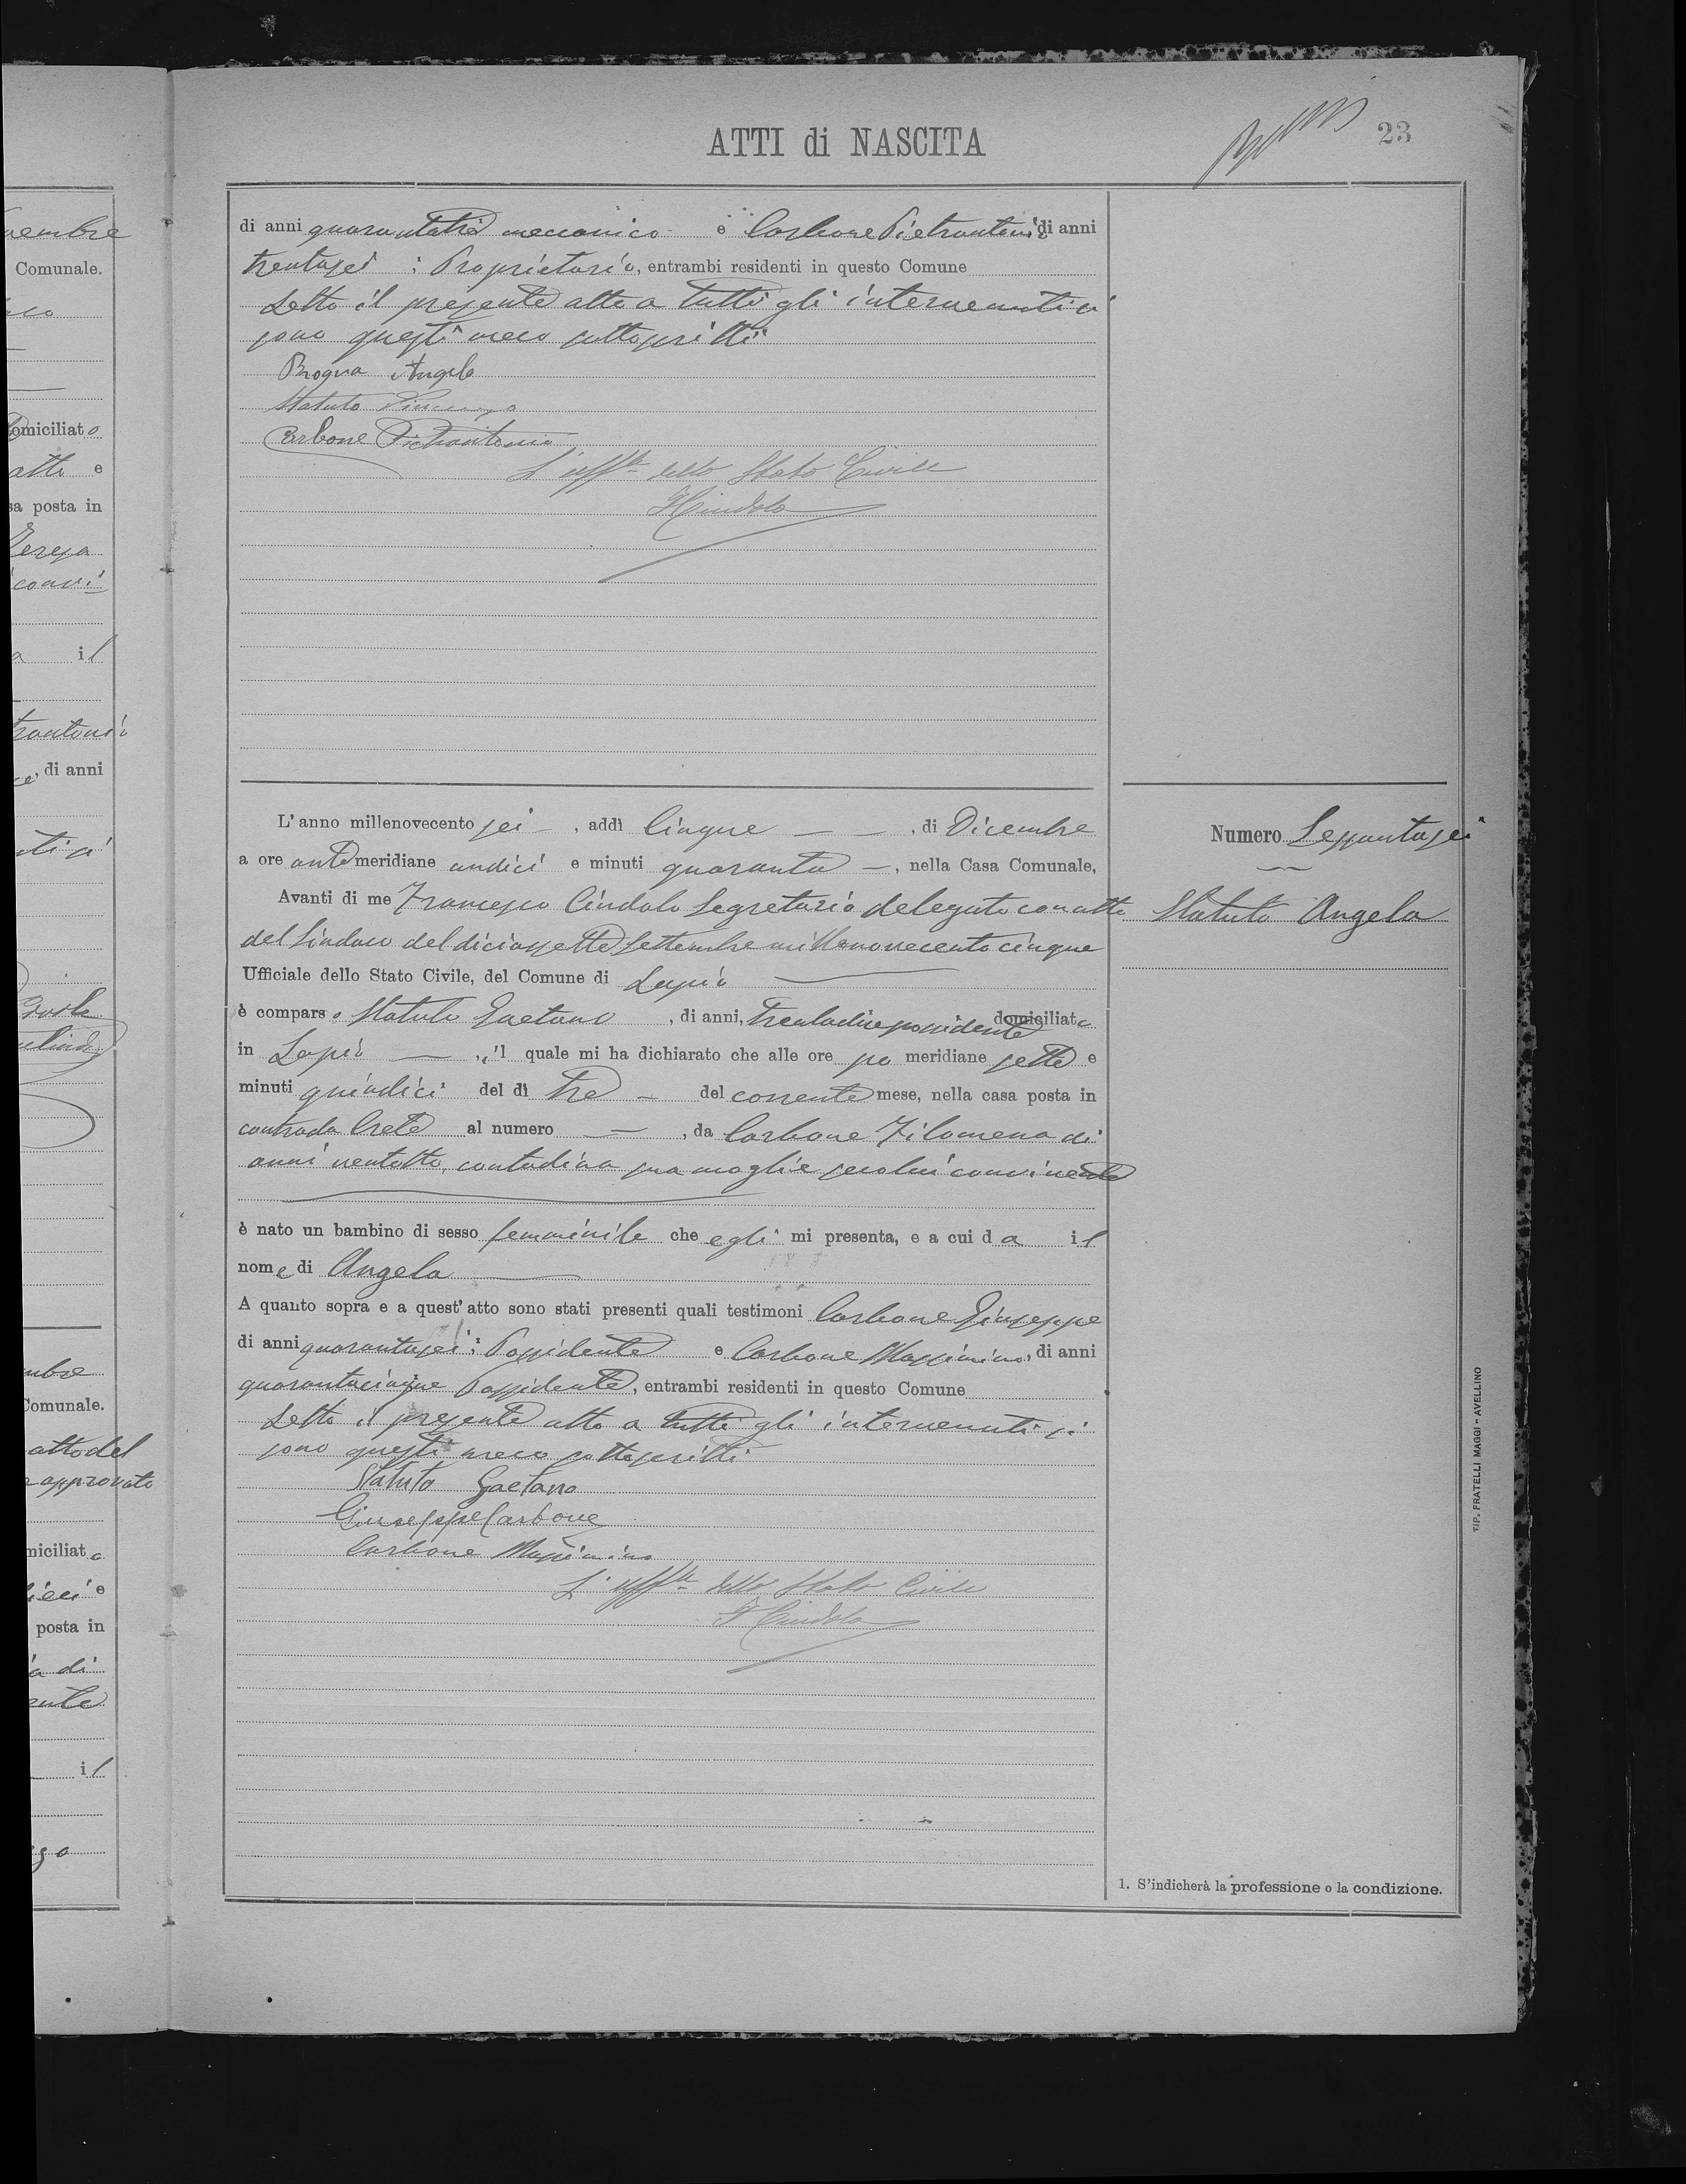 ATTI di NASCITA
23
di anni quarantatre meccanico e Carbone Pietrantonio di anni
trentasei : Proprietario, entrambi residenti in questo Comune
Letto il presente atto a tutti gli intervenuti si
sono questi meco sottoscritti
Brogna Angelo
Statuto Vincenzo
Carbone Pietrantonio
L'uff.le dello Stato Civile
F Cindolo
L'anno millenovecento sei, addì Cinque, di Dicembre
a ore antemeridiane undici e minuti quaranta, nella Casa Comunale.
Avanti di me Francesco Cindolo Segretario delegato con atto
del Sindaco del diciassette Settembre millenovecentocinque
Ufficiale dello Stato Civile, del Comune di Lapio
è comparso Statuto Gaetano, di anni, possidente domiciliato
in Lapio, il quale mi ha dichiarato che alle ore po meridiane sette e
minuti quindici del dì tre del corrente mese, nella casa posta in
contrada Crete al numero —, da Carbone Filomena di
anni ventotto, contadina sua moglie seco lui convivente
è nato un bambino di sesso femminile che egli mi presenta, e a cui dà il
nome di Angela
A quanto sopra e a quest'atto sono stati presenti quali testimoni Carbone Giuseppe
di anni quarantasei : Possidente e Carbone Massimino, di anni
quarantacinque Possidente, entrambi residenti in questo Comune
Letto il presente atto a tutti gli intervenuti si
sono questi meco sottoscritti
Statuto Gaetano
Giuseppe Carbone
Carbone Massimino
L'uff.le dello Stato Civile
F Cindolo
Numero Sessantasei
Statuto Angela
1. S'indicherà la professione o la condizione.
TIP. FRATELLI MAGGI - AVELLINO
Comunale.
domiciliato
atto e
posta in
Teresa
il
di anni
Comunale.
atto del
approvato
e
posta in
di
il